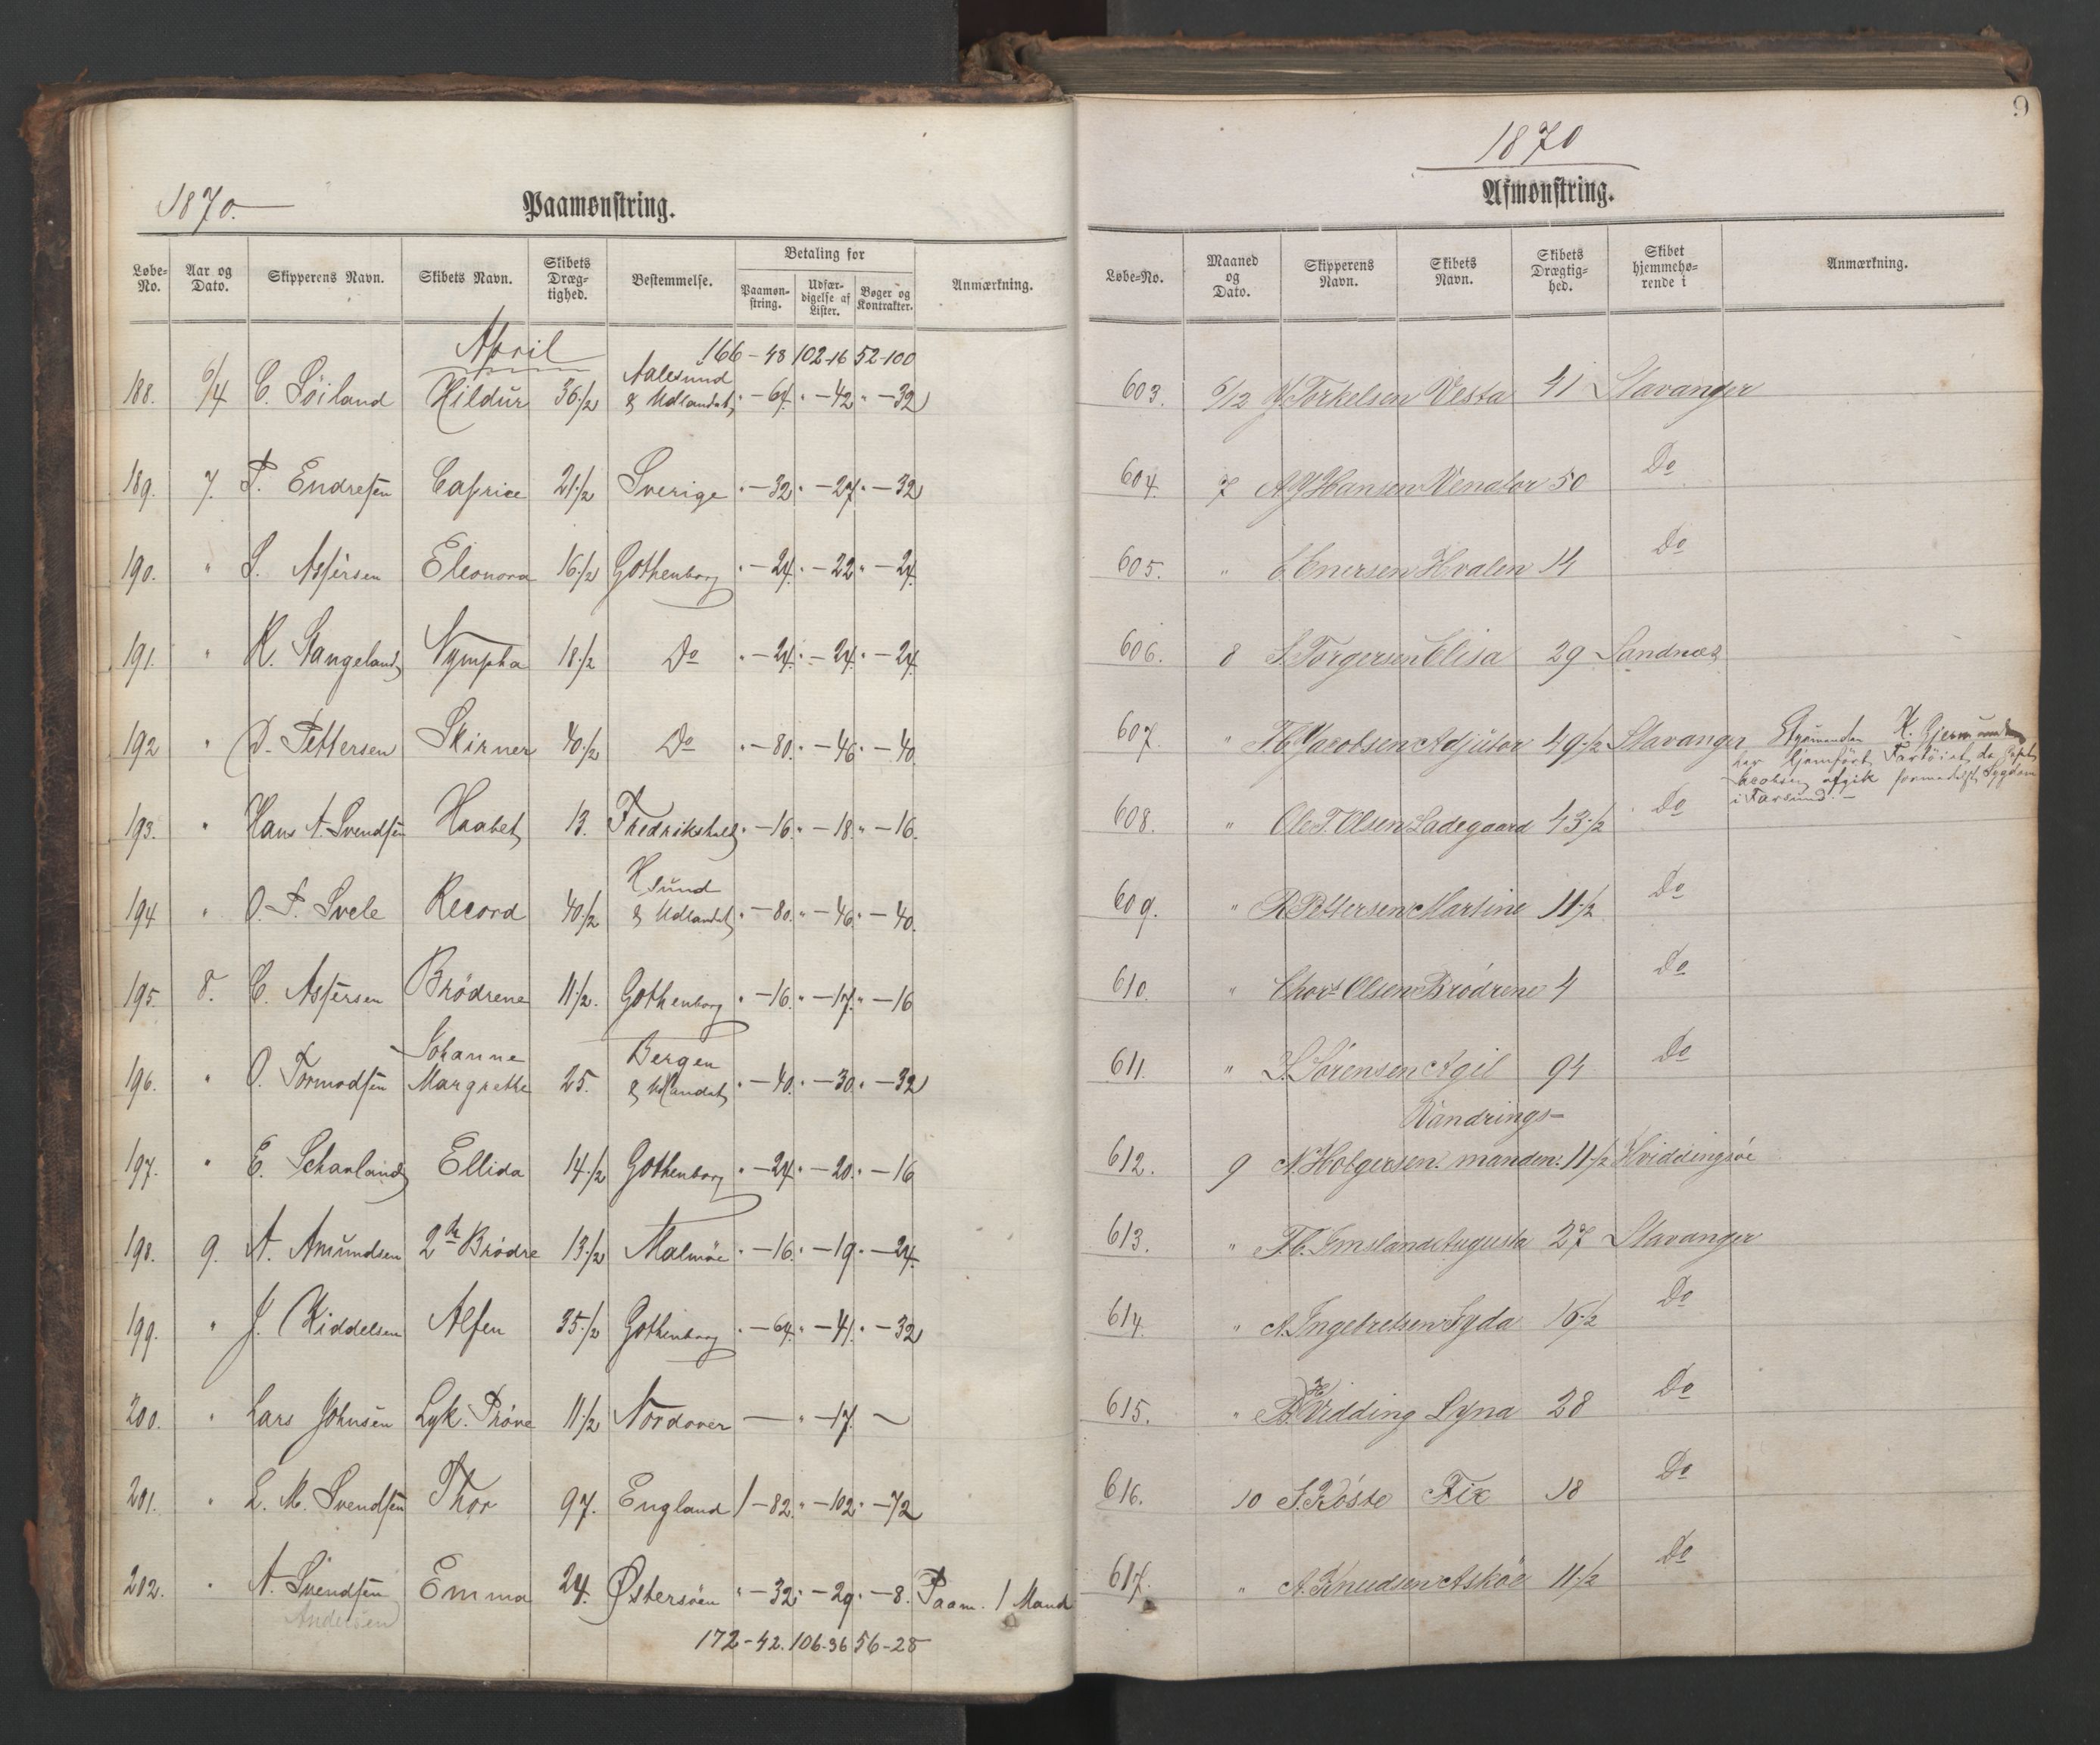 1870.
Paamønstring.
Løbe-No. | Aar og Dato. | Skipperens Navn. | Skibets Navn. | Skibets Dræg-tighed. | Bestemmelse. | Betaling for | Paamøn-string. | Udfær-digelse af Lister. | Bøger og Kontrakter. | Anmærkning.
April 166 - 48 102-16 52-100
188. 6/4 C. Söiland Hildur 36 1/2 Aalesund & Udlandet " - 64. " - 42 " - 32
189. 7. P. Endresen Caprice 21 1/2 Sverige " - 32. " - 27. " - 32
190. " S. Assersen Eleonora 16 1/2 Gothenborg " - 24. " - 22 " - 24.
191. " K. Stangeland Nympha 18 1/2 Do " - 24. " - 24. " - 24.
192 " D. Pettersen Skirner 40 1/2 Do " - 80. " - 46 " - 40.
193. " Hans A. Svendsen Haabet 13. Fredrikshald " - 16. " - 18 " - 16.
194 " O. P. Svele Record 40 1/2 H sund & Udlandet " - 80. " - 46. " - 40.
195. 8. C. Assersen Brödrene 11 1/2. Gothenborg " - 16. " - 17. " - 16
196. " O. Tormodsen Johanne Margrethe 25. Bergen & Udlandet " - 40. " - 30. " - 32
197. " E. Scharland Ellida 14 1/2 Gothenborg " - 24. " - 20. " - 16
198. 9. A. Amundsen 2de Brödre 13 1/2 Malmöe " - 16. " - 19. " - 24.
199. " J. Kiddelsen Alfen 35 1/2 Gothenborg " - 64. " - 41. " - 32
200. " Lars Johnsen Lyk. Pröve 11 1/2 Nordover — " - 17. —
201. " L. M. Svendsen Thor 97. England 1 - 82. " - 102. " - 72
202. " A. Svendsen Emma 24. Östersöen " - 32. " - 29. " - 8. Paam. 1 Mand
Andersen
172 - 42. 106-36 56-28
9
1870
Afmønstring.
Løbe-No. | Maaned og Dato. | Skipperens Navn. | Skibets Navn. | Skibets Drægtig-hed. | Skibet hjemmehø-rende i | Anmærkning.
603. 6/12 Torkelsen Vesta 41 Stavanger
604. 7 A Hansen Venator 50 Do
605. " Enersen Hvalen 14 Do
606. 8 S. Torgersen Elisa 29 Sandnæs
607. " Jacobsen Adjutor 49 1/2 Stavanger Styrmanden K.
har hjemført Fartöiet, da
Jacobsen afgik formedelst Sygdom
i Farsund. -
608. " Ole T. Olsen Ladegaard 43 1/2 Do
609. " R Pettersen Martine 11 1/2 Do
610. " Olsen Brödrene 4 Do
611. " Sörensen Agil 94 Do
612. 9 N. Holgersen. Vandrings-manden. 11 1/2 Hviddingsöe
613. " Imsland Augusta 27 Stavanger
614. " A. Ingebretsen Syda 16 1/2 Do
615. " Vidding Lyna 28 Do
616. 10 S. Röste Fix 18 Do
617. " A. Knudsen Asköe 11 1/2 Do